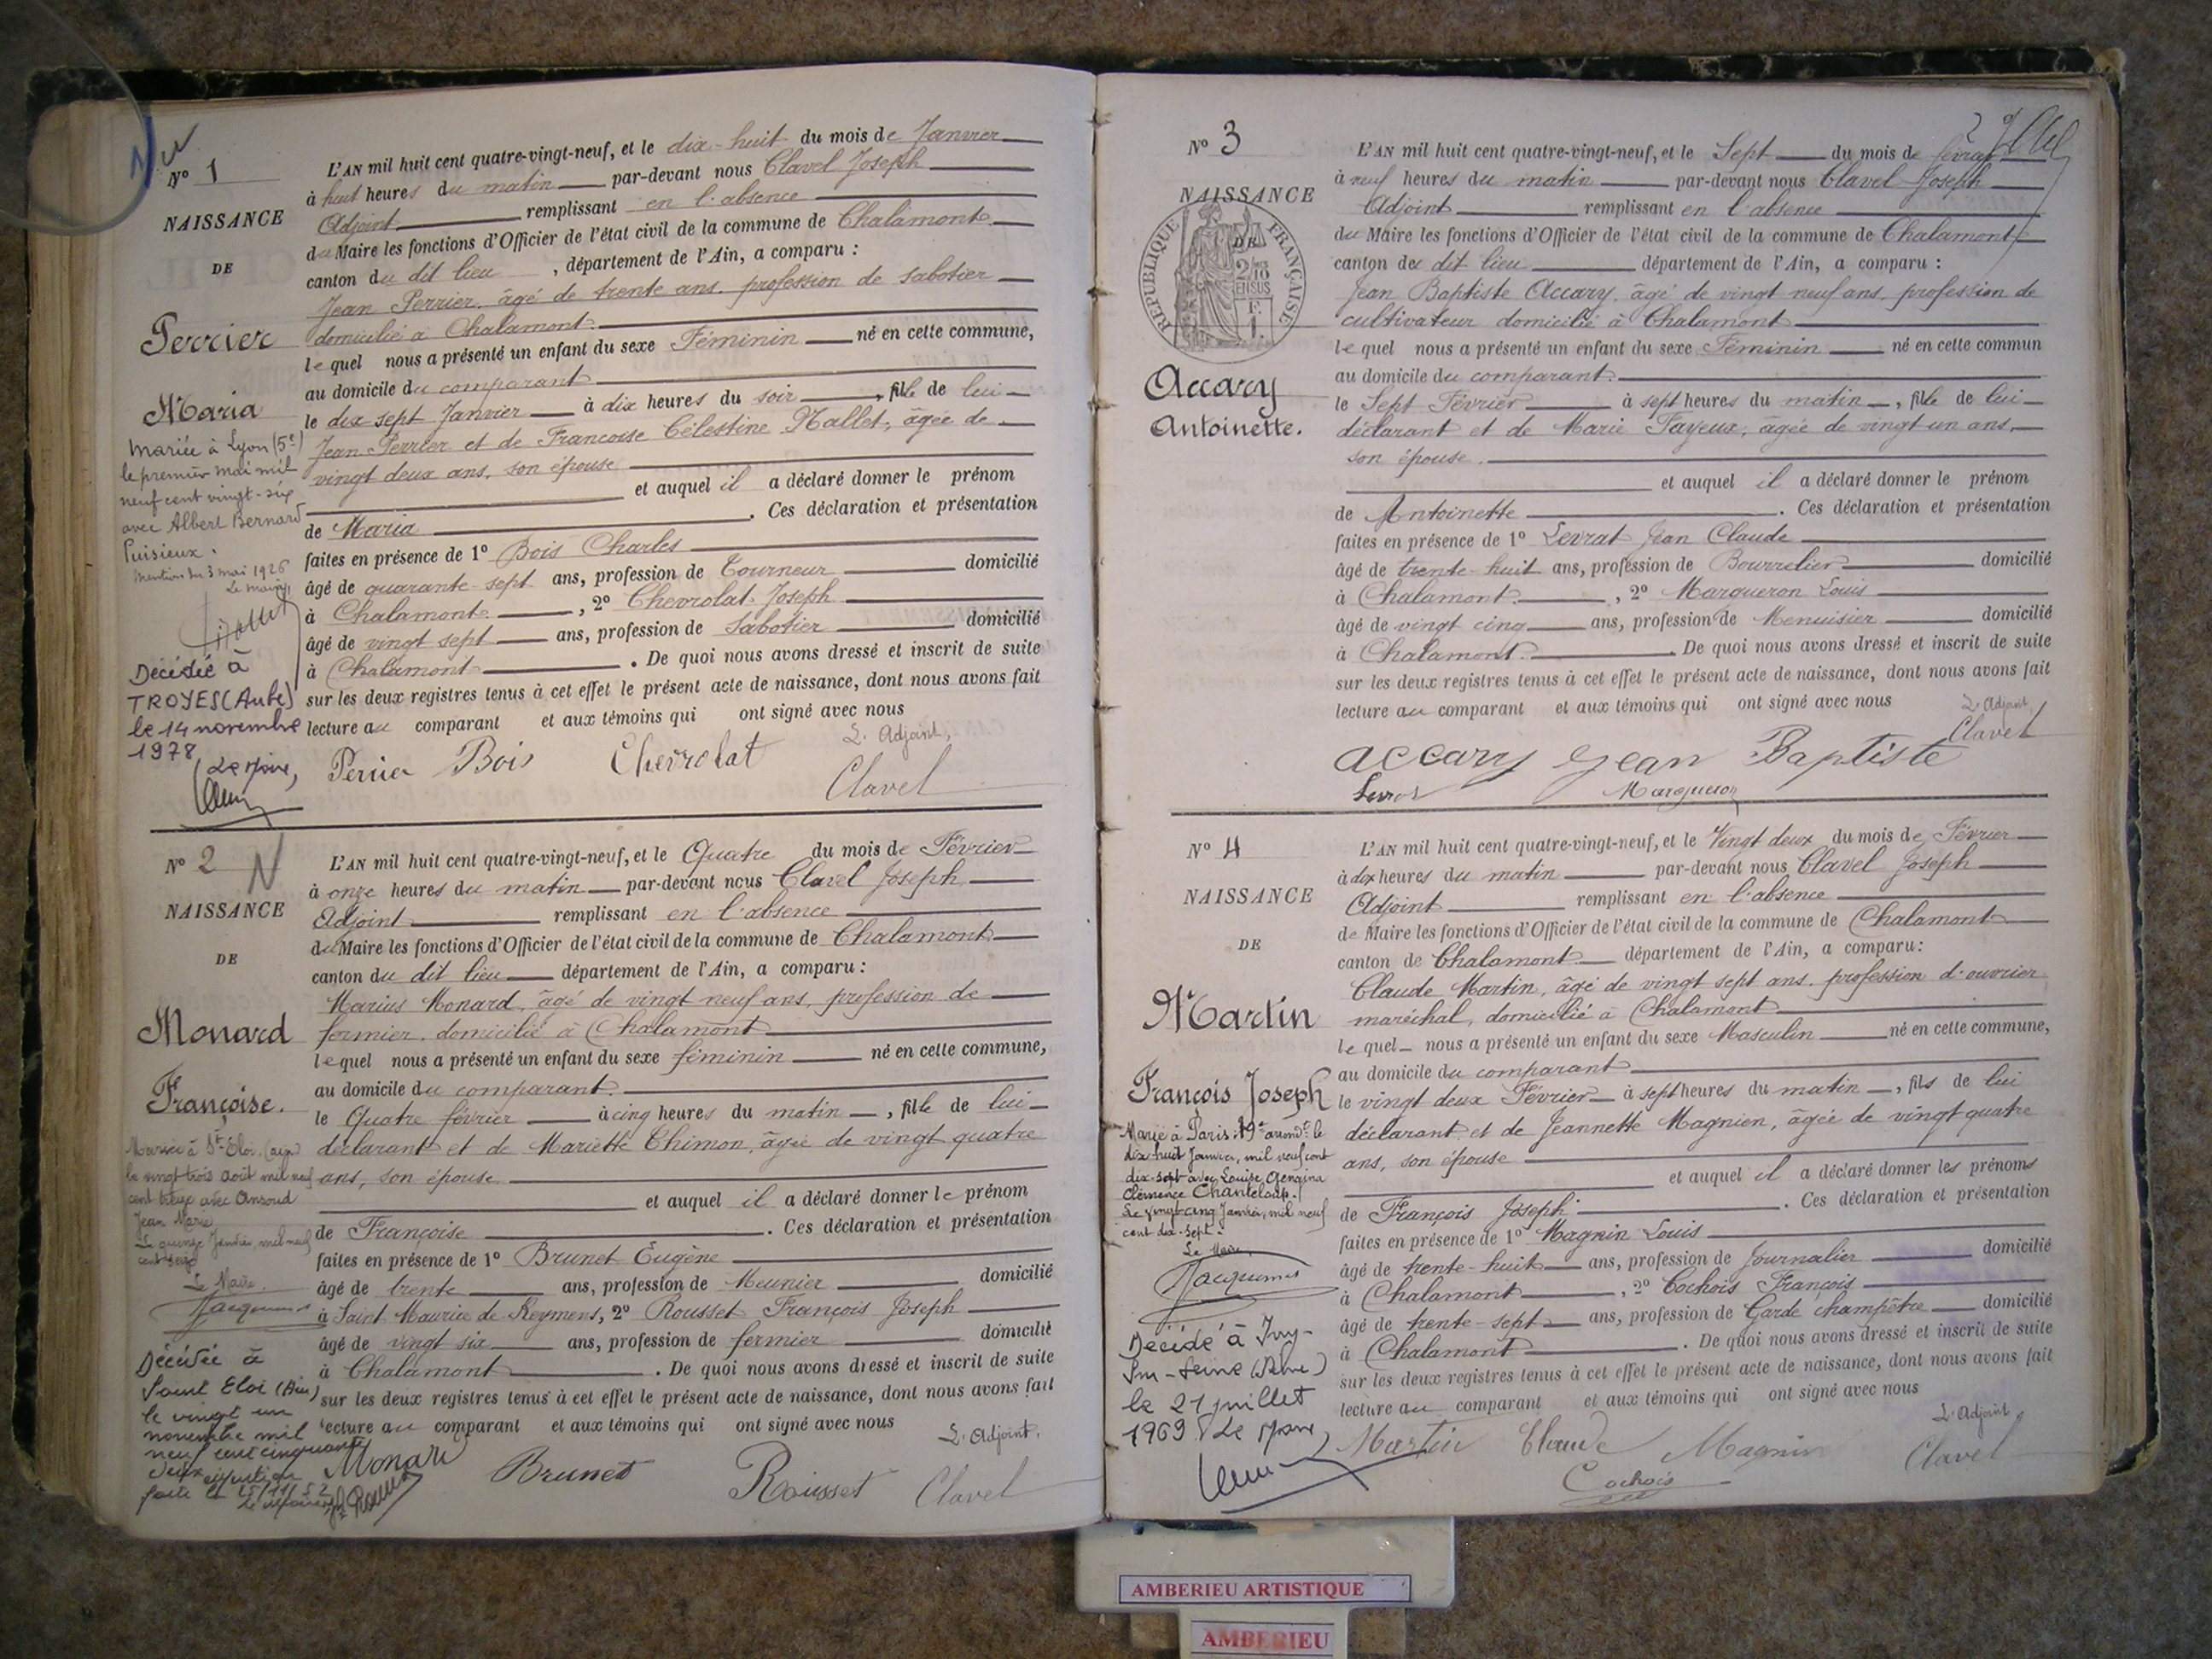 N° 1
NAISSANCE
DE
Perrier
Maria
Mariée à Lyon (5e)
le premier mai mil
neuf cent vingt-six
avec Albert Bernard
Puisieux.
Mention du 3 mai 1926
Le maire,
Décédée à
TROYES (Aube)
le 14 novembre
1978
Le Maire,
L'AN mil huit cent quatre-vingt-neuf, et le dix-huit du mois de Janvier
à huit heures du matin par-devant nous Clavel Joseph
Adjoint remplissant en l'absence
du Maire les fonctions d'Officier de l'état civil de la commune de Chalamont
canton du dit lieu, département de l'Ain, a comparu :
Jean Perrier, âgé de trente ans, profession de sabotier
domicilié à Chalamont.
lequel nous a présenté un enfant du sexe Féminin né en cette commune,
au domicile du comparant
le dix sept Janvier à dix heures du soir, fille de lui
Jean Perrier et de Francoise Célestine Mallet, âgée de
vingt deux ans, son épouse
et auquel il a déclaré donner le prénom
de Maria. Ces déclaration et présentation
faites en présence de 1° Bois Charles
âgé de quarante-sept ans, profession de Tourneur domicilié
à Chalamont, 2° Chevrolat Joseph
âgé de vingt sept ans, profession de Sabotier domicilié
à Chalamont. De quoi nous avons dressé et inscrit de suite
sur les deux registres tenus à cet effet le présent acte de naissance, dont nous avons fait
lecture au comparant et aux témoins qui ont signé avec nous
L'Adjoint,
Perrier Bois Chevrolat Clavel
N° 2 N
NAISSANCE
DE
Monard
Françoise.
Mariée à St Eloi (Ain)
le vingt trois août mil neuf
cent treize avec Ansoud
Jean Marie
Le quinze Janvier mil neuf
cent seize
Le Maire.
Jacquemes
Décédée à
Saint Eloi (Ain)
le vingt un
novembre mil
neuf cent cinquante
deux
faite le 25/11/52
L'AN mil huit cent quatre-vingt-neuf, et le Quatre du mois de Février
à onze heures du matin par-devant nous Clavel Joseph
Adjoint remplissant en l'absence
du Maire les fonctions d'Officier de l'état civil de la commune de Chalamont
canton du dit lieu département de l'Ain, a comparu :
Marius Monard, âgé de vingt neuf ans, profession de
fermier, domicilié à Chalamont
lequel nous a présenté un enfant du sexe féminin né en cette commune,
au domicile du comparant.
le Quatre février à cinq heures du matin, fille de lui
déclarant et de Mariette Thimon, âgée de vingt quatre
ans, son épouse
et auquel il a déclaré donner le prénom
de Françoise. Ces déclaration et présentation
faites en présence de 1° Brunet Eugène
âgé de trente ans, profession de Meunier domicilié
à Saint Maurice de Reymens, 2° Rousset François Joseph
âgé de vingt six ans, profession de fermier domicilié
à Chalamont. De quoi nous avons dressé et inscrit de suite
sur les deux registres tenus à cet effet le présent acte de naissance, dont nous avons fait
lecture au comparant et aux témoins qui ont signé avec nous
L'Adjoint.
Monard Brunet Rousset Clavel
N° 3
NAISSANCE
DE
RÉPUBLIQUE FRANÇAISE
Accary
Antoinette.
L'AN mil huit cent quatre-vingt-neuf, et le Sept du mois de février
à neuf heures du matin par-devant nous Clavel Joseph
Adjoint remplissant en l'absence
du Maire les fonctions d'Officier de l'état civil de la commune de Chalamont
canton du dit lieu département de l'Ain, a comparu :
Jean Baptiste Accary, âgé de vingt neuf ans, profession de
cultivateur domicilié à Chalamont
lequel nous a présenté un enfant du sexe Féminin né en cette commun
au domicile du comparant.
le Sept Février à sept heures du matin, fille de lui
déclarant et de Marie Fayeux, âgée de vingt-un ans,
son épouse.
et auquel il a déclaré donner le prénom
de Antoinette. Ces déclaration et présentation
faites en présence de 1° Levrat Jean Claude
âgé de trente-huit ans, profession de Bourrelier domicilié
à Chalamont, 2° Margueron Louis
âgé de vingt cinq ans, profession de Menuisier domicilié
à Chalamont. De quoi nous avons dressé et inscrit de suite
sur les deux registres tenus à cet effet le présent acte de naissance, dont nous avons fait
lecture au comparant et aux témoins qui ont signé avec nous
L'Adjoint,
Clavel
accary Jean Baptiste
Levrat Margueron
N° 4
NAISSANCE
DE
Martin
François Joseph
Marié à Paris 19e arrondt le
dix-huit Janvier, mil neuf cent
dix-sept avec Louise
Clémence Chanteloup.
Le vingt-cinq Janvier, mil neuf
cent dix-sept.
Le Maire,
Jacquemes
Décédé à Ivry-
sur-Seine (Seine)
le 21 juillet
1969 Le Maire,
L'AN mil huit cent quatre-vingt-neuf, et le Vingt deux du mois de Février
à dix heures du matin par-devant nous Clavel Joseph
Adjoint remplissant en l'absence
de Maire les fonctions d'Officier de l'état civil de la commune de Chalamont
canton de Chalamont département de l'Ain, a comparu :
Claude Martin, âgé de vingt sept ans, profession d'ouvrier
maréchal, domicilié à Chalamont
lequel nous a présenté un enfant du sexe Masculin né en cette commune,
au domicile du comparant
le vingt deux Février à sept heures du matin, fils de lui
déclarant et de Jeannette Magnien, âgée de vingt quatre
ans, son épouse
et auquel il a déclaré donner les prénoms
de François Joseph. Ces déclaration et présentation
faites en présence de 1° Magnin Louis
âgé de trente-huit ans, profession de Journalier domicilié
à Chalamont, 2° Cochois François
âgé de trente-sept ans, profession de Garde champêtre domicilié
à Chalamont. De quoi nous avons dressé et inscrit de suite
sur les deux registres tenus à cet effet le présent acte de naissance, dont nous avons fait
lecture au comparant et aux témoins qui ont signé avec nous
L'Adjoint
Martin Claude Magnin Clavel
Cochois
AMBERIEU ARTISTIQUE
AMBERIEU